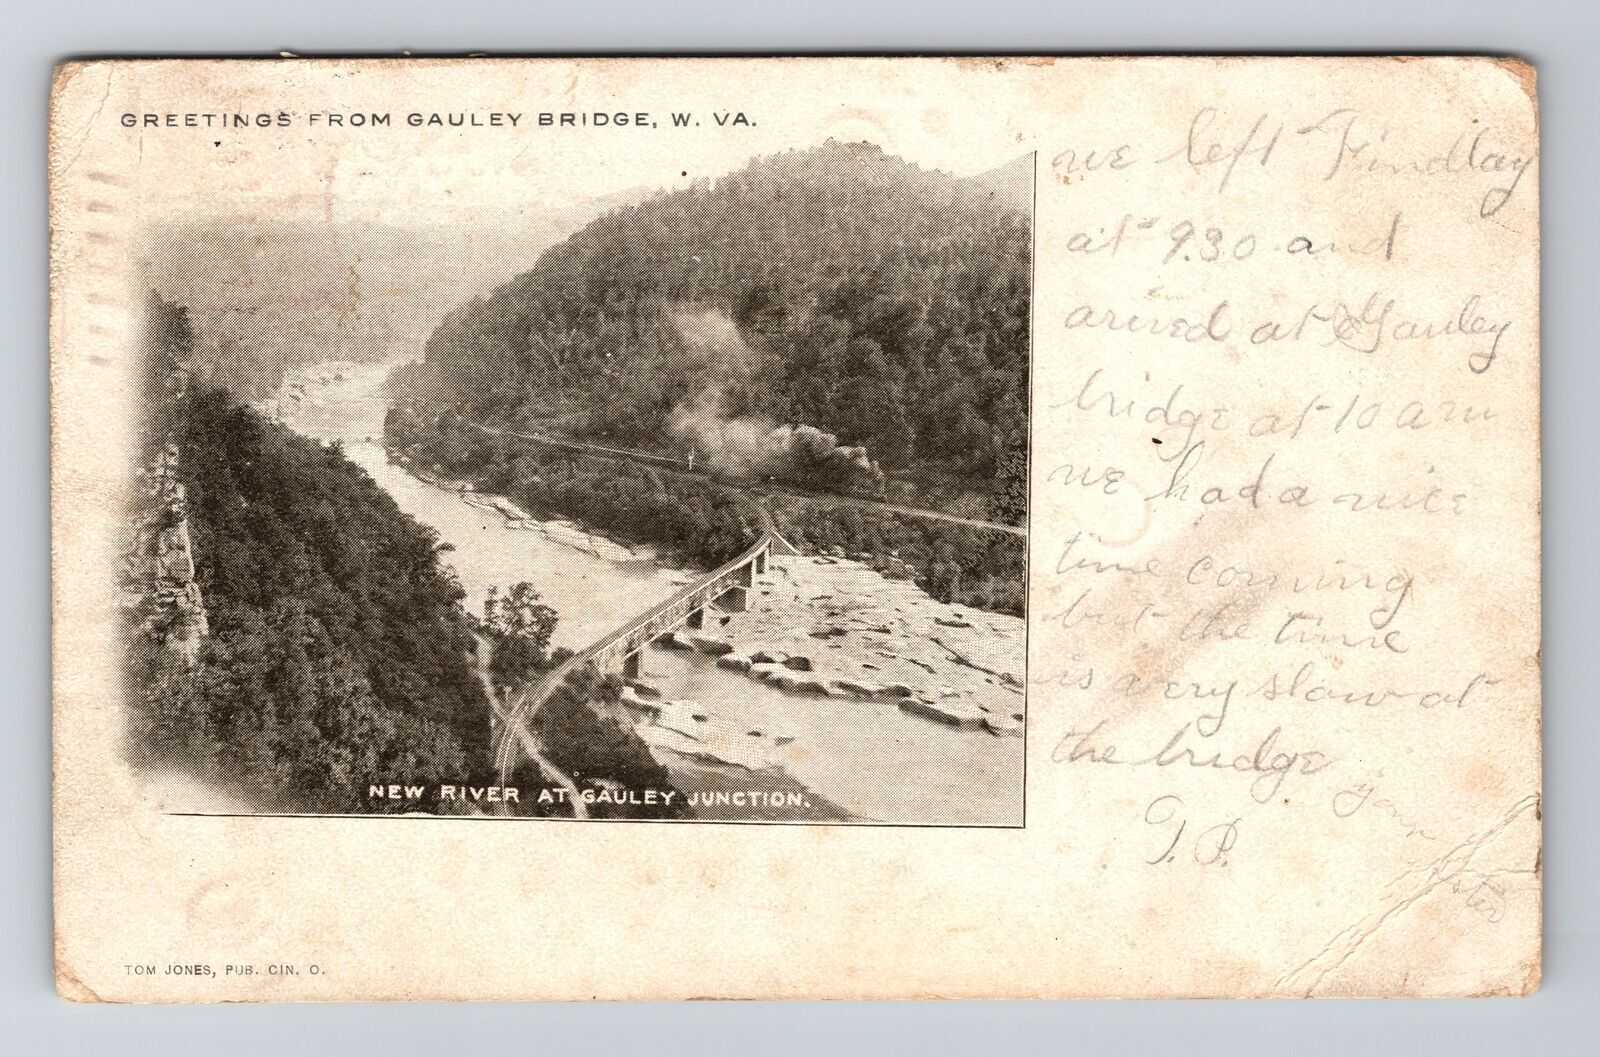 GREETINGS FROM GAULEY BRIDGE, W. VA.
we left Findlay
at 9.30 and
arived at Gauley
bridge at 10 am
we had a nice
time coming
but the time
is very slow at
the bridge
your
T. P.
NEW RIVER AT GAULEY JUNCTION.
TOM JONES, PUB. CIN. O.